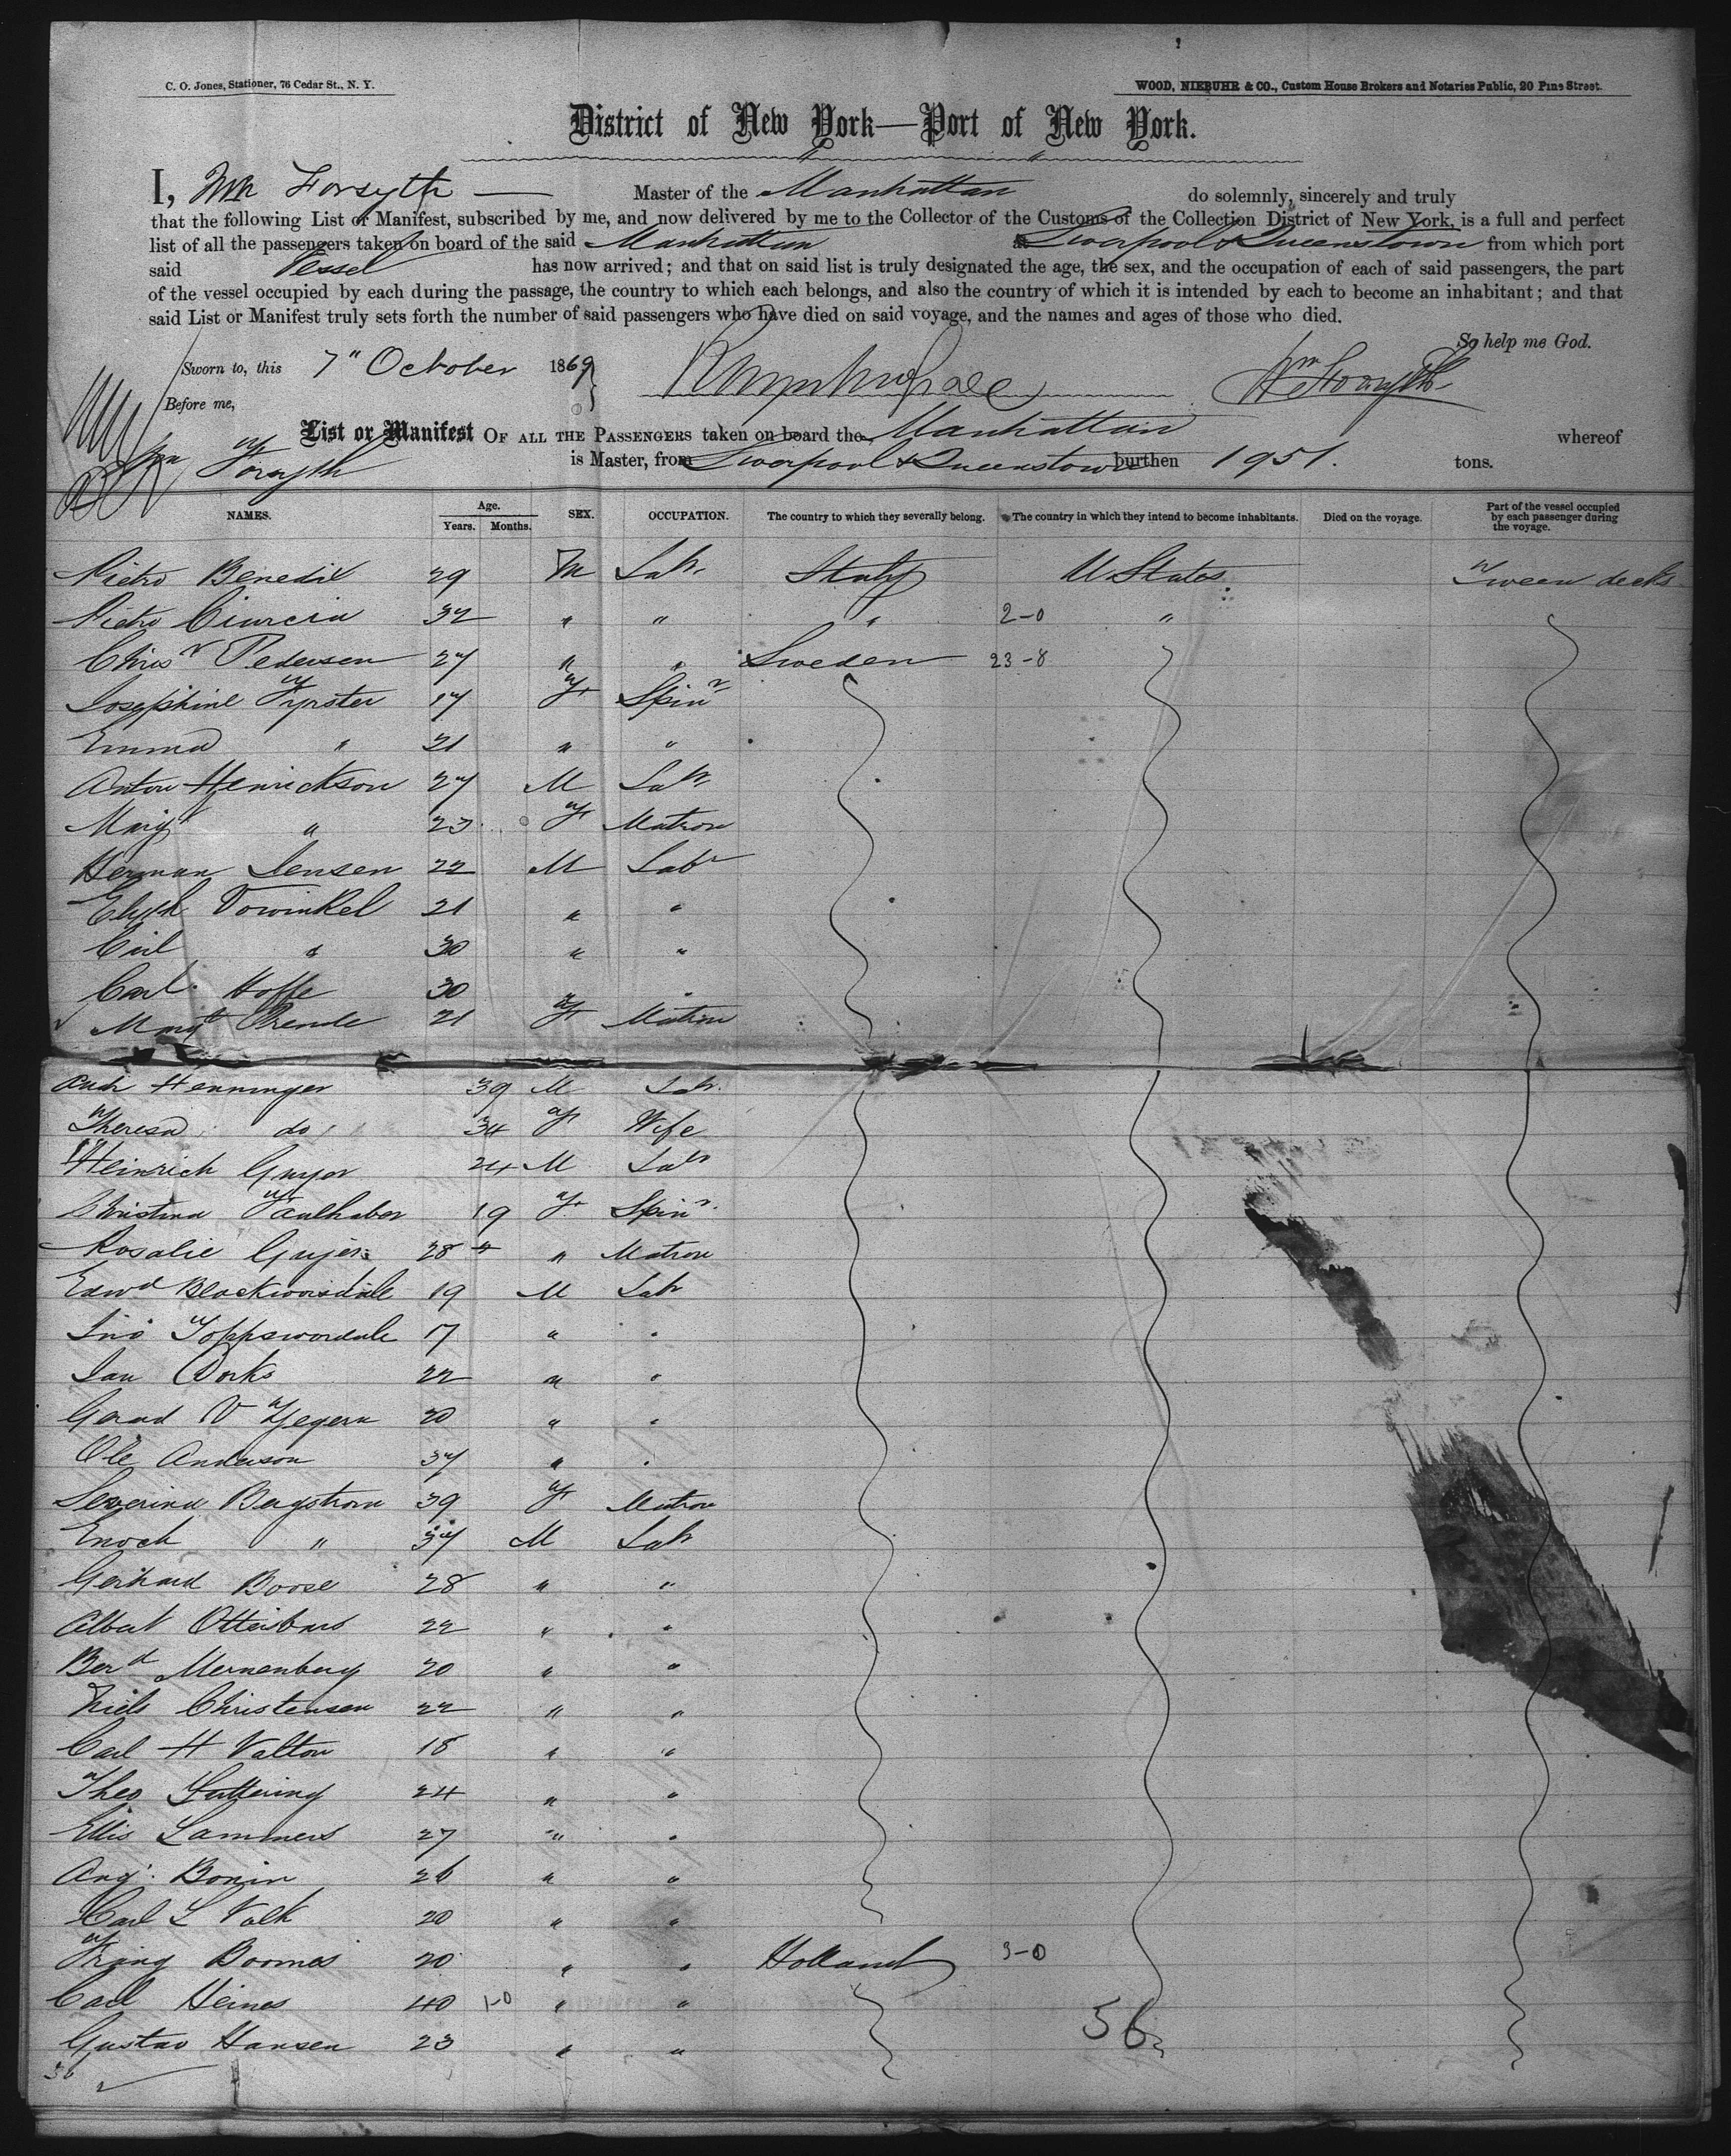 C. O. Jones, Stationer, 76 Cedar St., N. Y.
WOOD, NIEBUHR & CO., Custom House Brokers and Notaries Public, 20 Pine Street.
District of New York—Port of New York.
I, Wm Forsyth Master of the Manhattan do solemnly, sincerely and truly
that the following List or Manifest, subscribed by me, and now delivered by me to the Collector of the Customs of the Collection District of New York, is a full and perfect
list of all the passengers taken on board of the said Manhattan at Liverpool & Queenstown from which port
said Vessel has now arrived; and that on said list is truly designated the age, the sex, and the occupation of each of said passengers, the part
of the vessel occupied by each during the passage, the country to which each belongs, and also the country of which it is intended by each to become an inhabitant; and that
said List or Manifest truly sets forth the number of said passengers who have died on said voyage, and the names and ages of those who died.
So help me God.
Sworn to, this 7" October 1869
Wm Forsyth
Before me,
List or Manifest OF ALL THE PASSENGERS taken on board the Manhattan whereof
Wm Forsyth is Master, from Liverpool & Queenstown burthen 1951. tons.
NAMES. Age. Years. Months. SEX. OCCUPATION. The country to which they severally belong. The country in which they intend to become inhabitants. Died on the voyage. Part of the vessel occupied by each passenger during the voyage.
Pietro Benedix 29 M Labr Italy U States Tween decks
Pietro Ciurcia 32 " " " 2-0 "
Chrisr Pedersen 27 " " Sweden 23-8
Josephine Fyrster 17 F Spinr
Emma " 21 " "
Anton Henrickson 27 M Labr
Margt " 23 F Matron
Herman Jensen 22 M Labr
Elizth Vowinkel 21 " "
Carl " 30 " "
Carl Hoffe 30 "
Margt Prende 21 F Matron
Andr Henninger 39 M Labr
Theresa do 34 F Wife
Heinrich Guyer 24 M Labr
Christina Faulhaber 19 F Spinr
Rosalie Guyer 28 " Matron
Edwd Blackworsdale 19 M Labr
Jno Toppswordale 17 " "
Jan Dorks 22 " "
Gerad V Tegern 20 " "
Ole Anderson 37 " "
Severina Bergstrom 39 F Matron
Enoch " 37 M Labr
Gerhard Boose 28 " "
Albert 22 " "
Berd Mernenberg 20 " "
Niels Christensen 22 " "
Carl H Valton 18 " "
Theo Luttering 24 " "
Ellis Lammers 27 " "
Augt Bonin 26 " "
Carl L Valk 20 " "
Franz Boomes 20 " " Holland 3-0
Carl Heines 40 1-0 " "
Gustav Hansen 23 " "
36
56